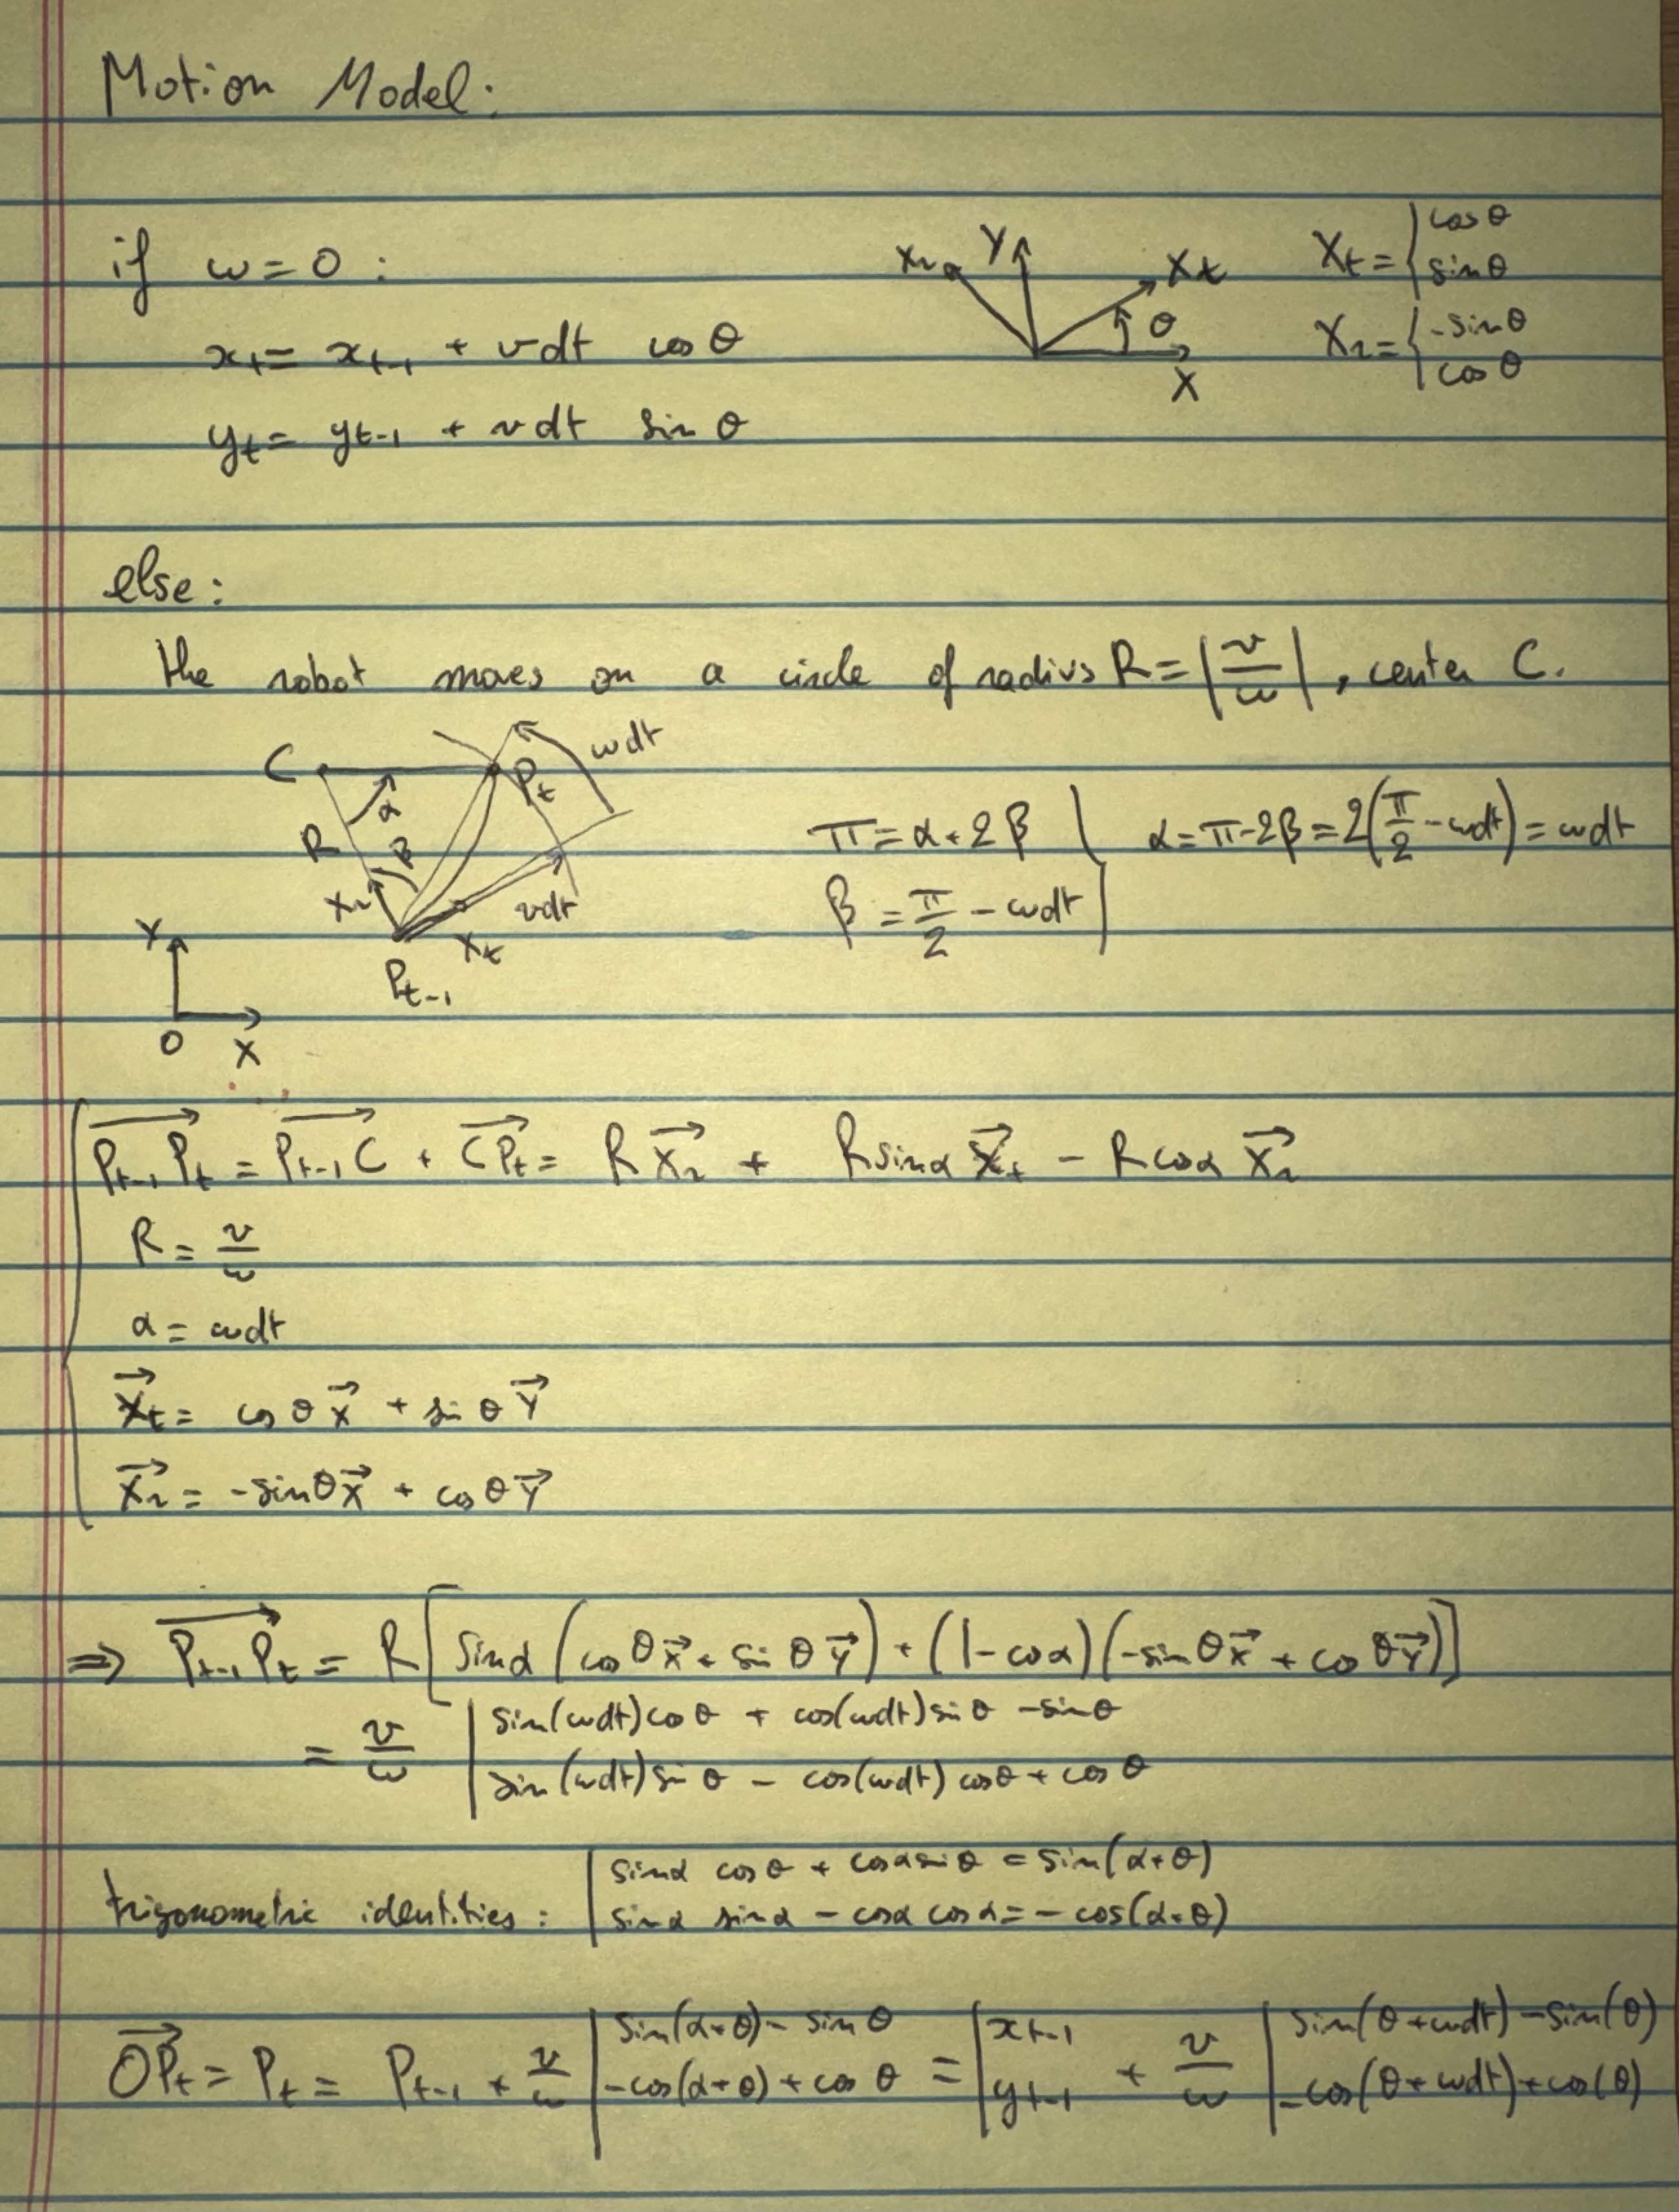 Motion Model:
if ω = 0 :
x_t = x_{t-1} + v dt cos θ
y_t = y_{t-1} + v dt sin θ
X_r Y X_t θ X
X_t = | cos θ
| sin θ
X_r = | -sin θ
| cos θ
else :
the robot moves on a circle of radius R = |v/ω|, center C.
C α R β X_r P_t ωdt vdt X_t P_{t-1}
Y O X
π = α + 2β
β = π/2 - ωdt
α = π - 2β = 2(π/2 - ωdt) = ωdt
P_{t-1}P_t→ = P_{t-1}C→ + CP_t→ = R X_r→ + R sinα X_t→ - R cosα X_r→
R = v/ω
α = ωdt
X_t→ = cos θ X→ + sin θ Y→
X_r→ = -sin θ X→ + cos θ Y→
=> P_{t-1}P_t→ = R [ sinα (cos θ X→ + sin θ Y→) + (1 - cosα)(-sin θ X→ + cos θ Y→)]
= v/ω | sin(ωdt)cos θ + cos(ωdt)sin θ - sin θ
| sin(ωdt)sin θ - cos(ωdt)cos θ + cos θ
trigonometric identities : | sinα cos θ + cosα sin θ = sin(α+θ)
| sinα sinα - cosα cosα = - cos(α+θ)
OP_t→ = P_t = P_{t-1} + v/ω | sin(α+θ) - sin θ
| -cos(α+θ) + cos θ
= | x_{t-1}
| y_{t-1}
+ v/ω | sin(θ+ωdt) - sin(θ)
| -cos(θ+ωdt) + cos(θ)